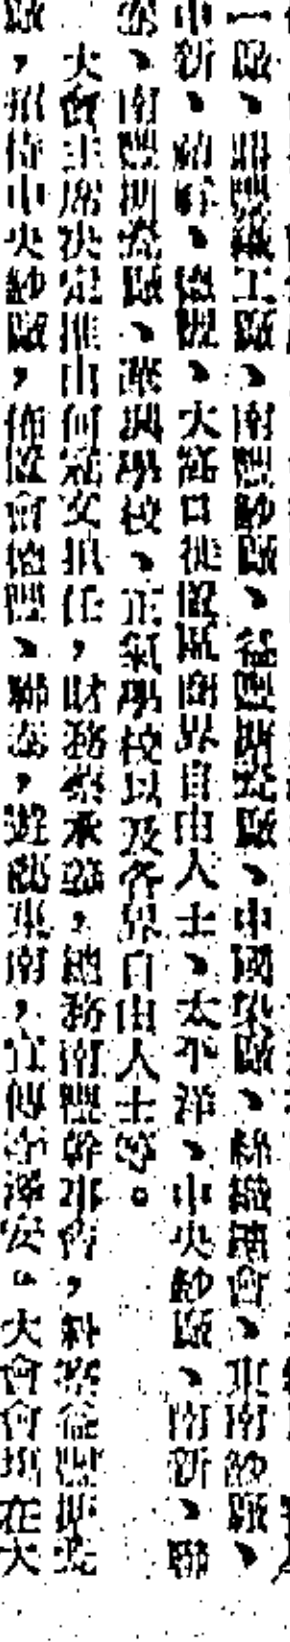 一廠、開豐織工廠、南豐紗廠、益豐搪瓷廠、中國染廠、絲織總會、東南紗廠、
中新、紹、德、大窩口徙置區商界自由人士、太平洋、中央紗廠、南新、聯
泰、南豐搪瓷廠、華風學校、正氣學校以及各界自由人士等。
大會主席決定推由何冠女担任，財務蔡承，總務南豐幹事會，糾察益豐搪瓷
廠，招待中央紗廠，佈置會德豐、聯泰，遊藝東南，宣傳李澤安。大會會場在大